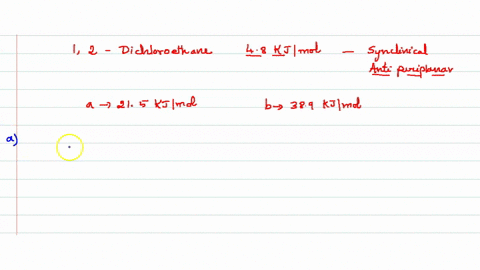 1, 2 - Dichloroethane 4.8 KJ/mol — Synclinical
Anti periplanar
a → 21.5 KJ/mol b → 38.9 KJ/mol
a)